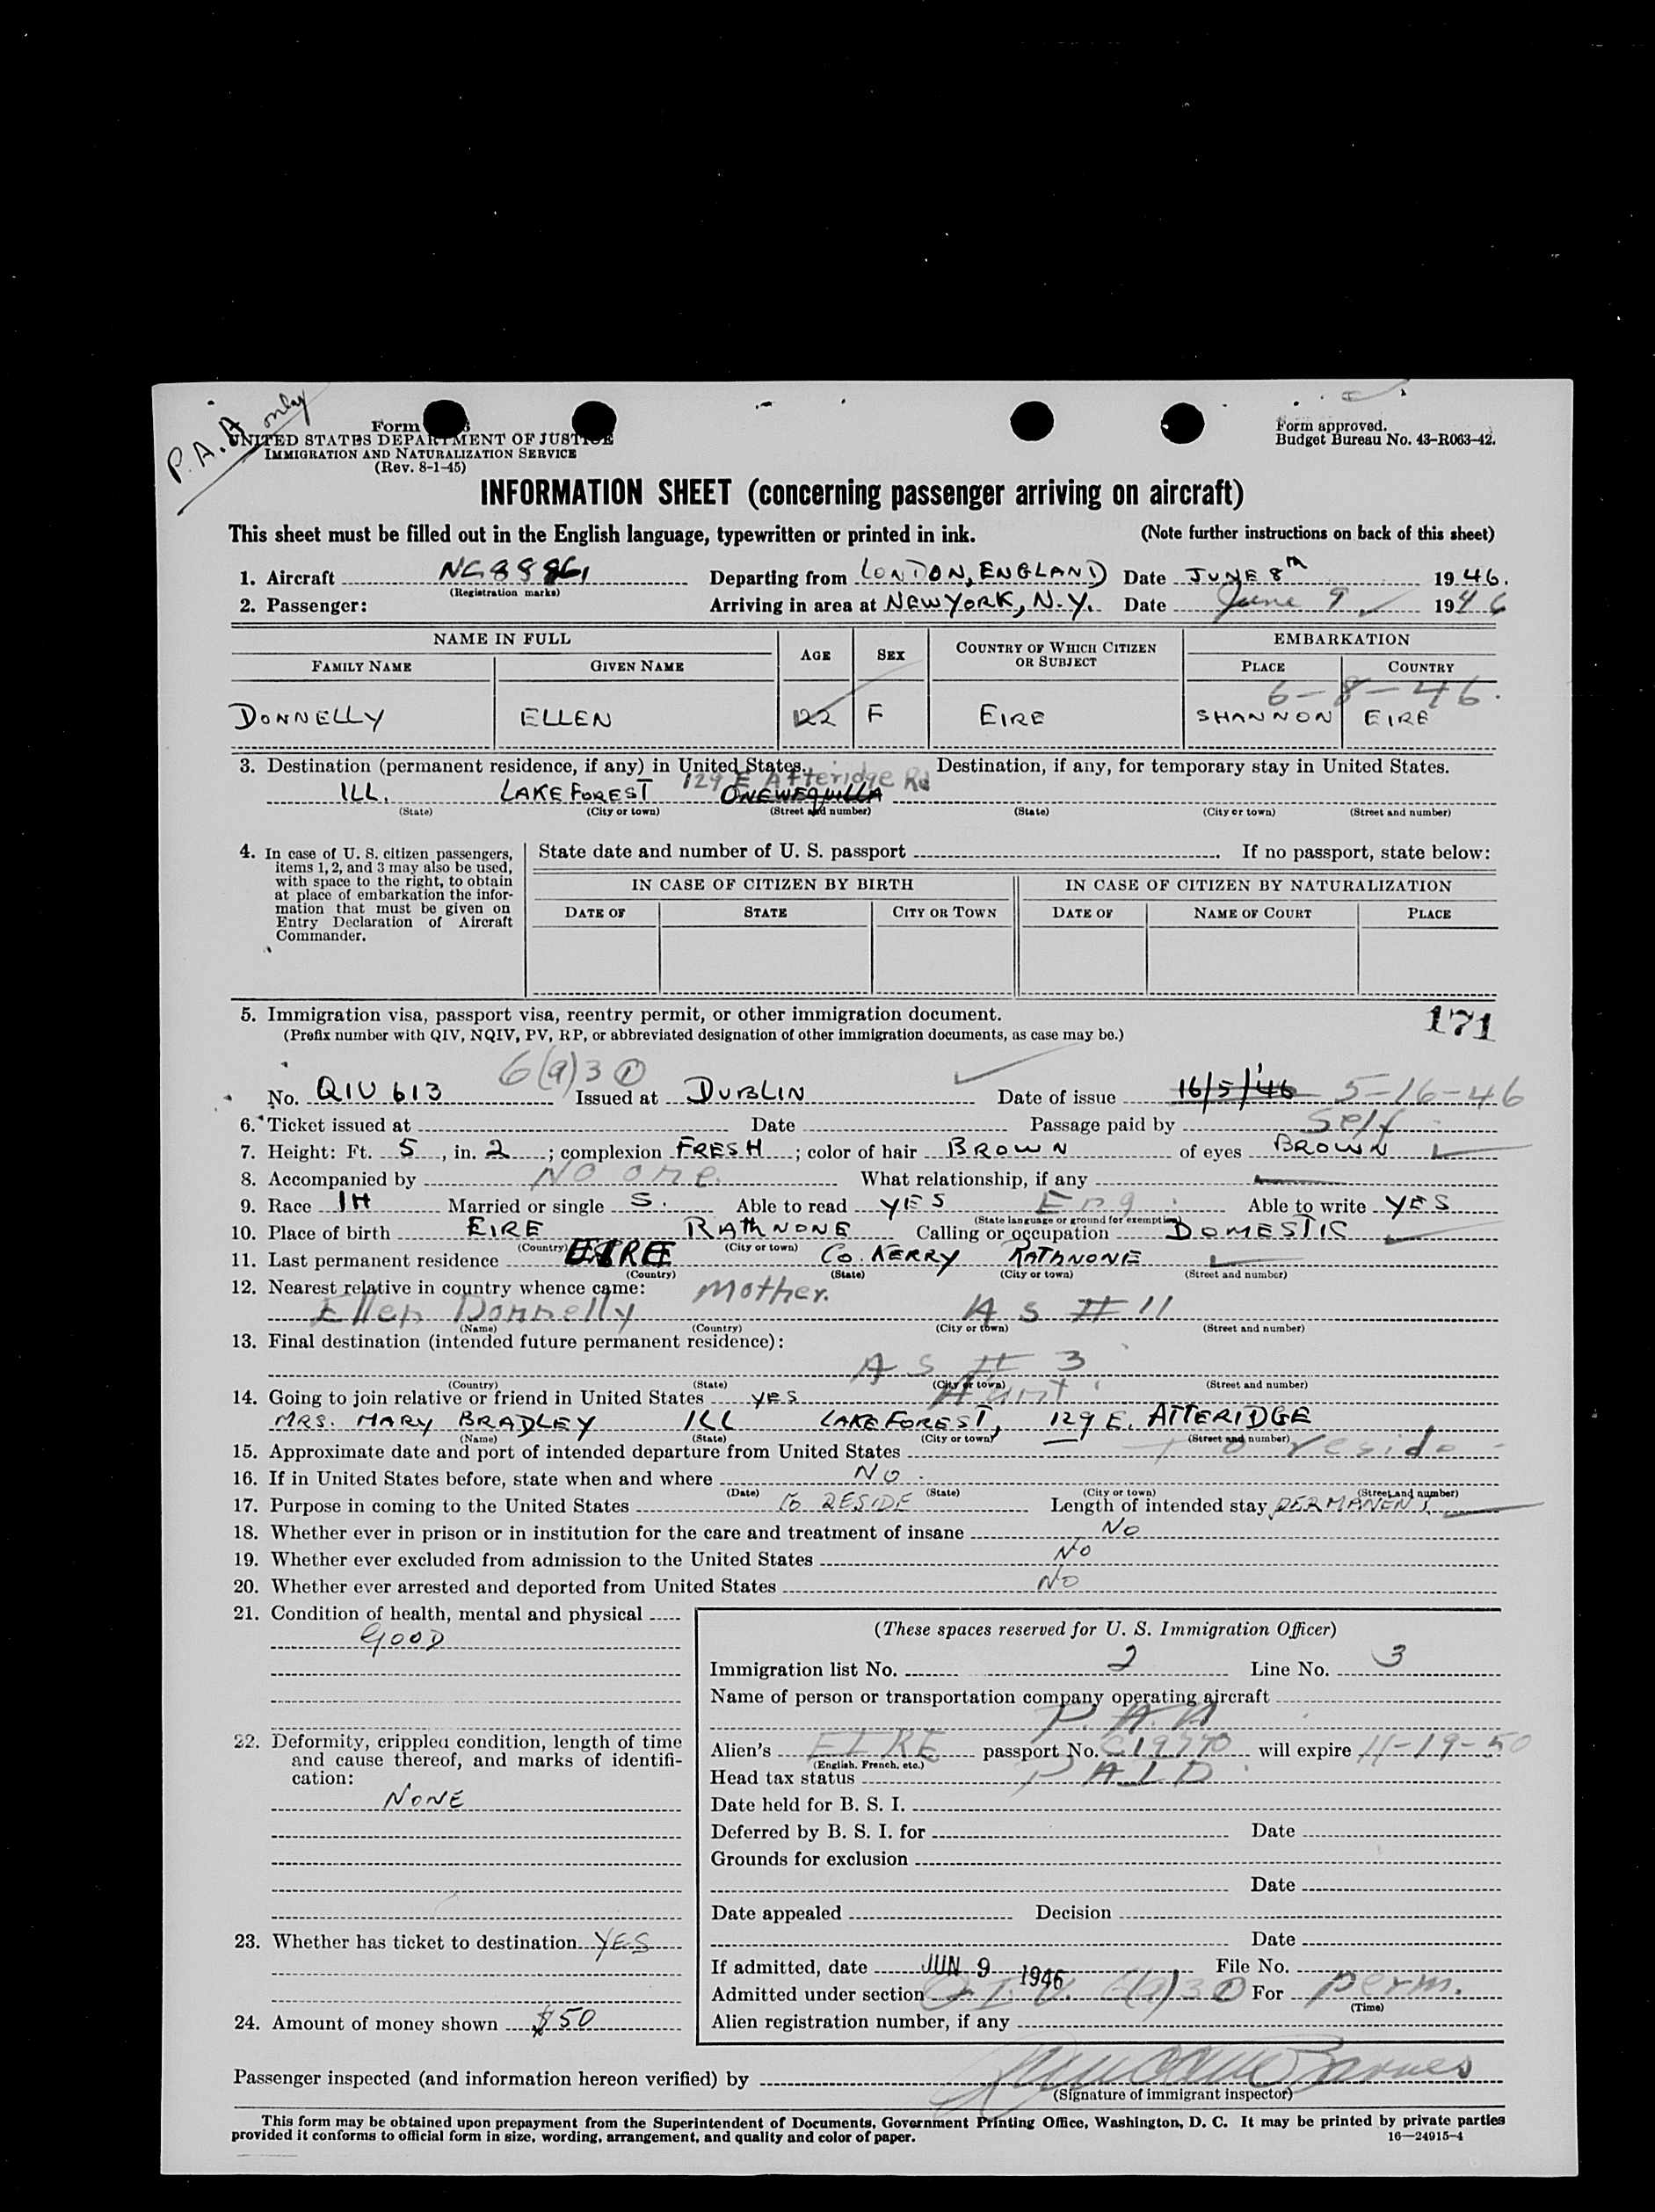 P.A.A only
Form
UNITED STATES DEPARTMENT OF JUSTICE
IMMIGRATION AND NATURALIZATION SERVICE
(Rev. 8-1-45)
Form approved.
Budget Bureau No. 43-R063-42.
INFORMATION SHEET (concerning passenger arriving on aircraft)
This sheet must be filled out in the English language, typewritten or printed in ink. (Note further instructions on back of this sheet)
1. Aircraft Departing from LONDON, ENGLAND Date JUNE 8th 1946.
(Registration marks)
2. Passenger: Arriving in area at NEW YORK, N.Y. Date June 9 1946
NAME IN FULL AGE SEX COUNTRY OF WHICH CITIZEN OR SUBJECT EMBARKATION
FAMILY NAME GIVEN NAME PLACE COUNTRY
6-8-46.
DONNELLY ELLEN 22 F EIRE SHANNON EIRE
3. Destination (permanent residence, if any) in United States. Destination, if any, for temporary stay in United States.
129 E Atteridge Rd
ILL. LAKE FOREST
(State) (City or town) (Street and number) (State) (City or town) (Street and number)
4. In case of U. S. citizen passengers, items 1, 2, and 3 may also be used, with space to the right, to obtain at place of embarkation the information that must be given on Entry Declaration of Aircraft Commander.
State date and number of U. S. passport . If no passport, state below:
IN CASE OF CITIZEN BY BIRTH IN CASE OF CITIZEN BY NATURALIZATION
DATE OF STATE CITY OR TOWN DATE OF NAME OF COURT PLACE
5. Immigration visa, passport visa, reentry permit, or other immigration document. 171
(Prefix number with QIV, NQIV, PV, RP, or abbreviated designation of other immigration documents, as case may be.)
6(a)3 ①
No. QIV 613 Issued at DUBLIN Date of issue 16/5/'46 5-16-46
6. Ticket issued at Date Passage paid by Self
7. Height: Ft. 5, in. 2; complexion FRESH; color of hair BROWN of eyes BROWN
8. Accompanied by No one. What relationship, if any
9. Race IH Married or single S. Able to read YES Eng. Able to write YES
(State language or ground for exemption)
10. Place of birth EIRE RATHNONE Calling or occupation DOMESTIC
(Country) (City or town)
11. Last permanent residence EIRE CO. KERRY RATHNONE
(Country) (State) (City or town) (Street and number)
12. Nearest relative in country whence came: Mother.
Ellen Donnelly As # 11
(Name) (Country) (City or town) (Street and number)
13. Final destination (intended future permanent residence):
As # 3
(Country) (State) (City or town) (Street and number)
14. Going to join relative or friend in United States YES Aunt.
MRS. MARY BRADLEY ILL LAKE FOREST, 129 E. ATTERIDGE
(Name) (State) (City or town) (Street and number)
15. Approximate date and port of intended departure from United States To reside
16. If in United States before, state when and where NO.
(Date) (State) (City or town) (Street and number)
17. Purpose in coming to the United States TO RESIDE Length of intended stay PERMANENT.
18. Whether ever in prison or in institution for the care and treatment of insane No
19. Whether ever excluded from admission to the United States No
20. Whether ever arrested and deported from United States No
21. Condition of health, mental and physical
GOOD
22. Deformity, crippled condition, length of time and cause thereof, and marks of identification:
NONE
23. Whether has ticket to destination YES
24. Amount of money shown $50
(These spaces reserved for U. S. Immigration Officer)
Immigration list No. 2 Line No. 3
Name of person or transportation company operating aircraft
P.A.A
Alien's EIRE passport No. will expire 11-19-50
(English, French, etc.)
Head tax status PAID
Date held for B. S. I.
Deferred by B. S. I. for Date
Grounds for exclusion
Date
Date appealed Decision
Date
If admitted, date JUN 9 1946 File No.
Admitted under section Q.I.V. 6(a)3 ① For perm.
(Time)
Alien registration number, if any
Passenger inspected (and information hereon verified) by Barnes
(Signature of immigrant inspector)
This form may be obtained upon prepayment from the Superintendent of Documents, Government Printing Office, Washington, D. C. It may be printed by private parties
provided it conforms to official form in size, wording, arrangement, and quality and color of paper. 16—24915-4